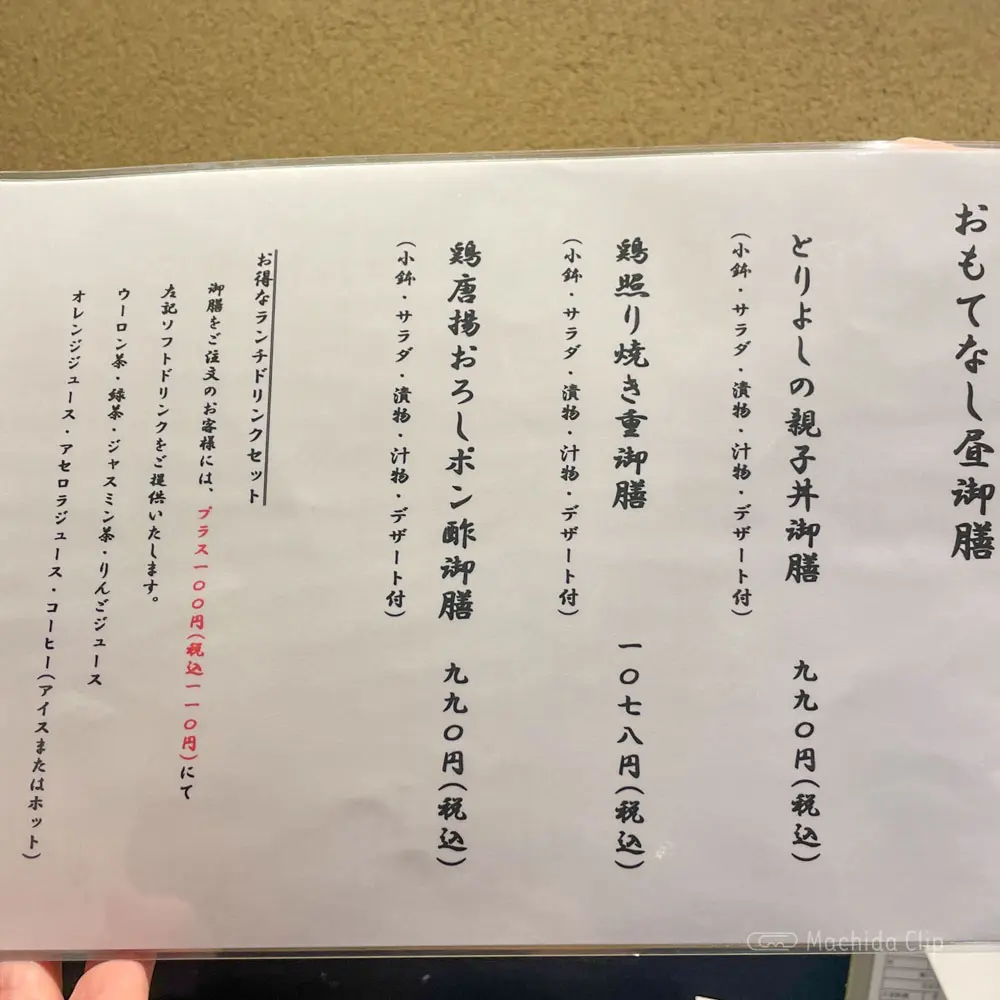 おもてなし昼御膳
とりよしの親子丼御膳 九九〇円(税込)
(小鉢・サラダ・漬物・汁物・デザート付)
鶏照り焼き重御膳 一〇七八円(税込)
(小鉢・サラダ・漬物・汁物・デザート付)
鶏唐揚おろしポン酢御膳 九九〇円(税込)
(小鉢・サラダ・漬物・汁物・デザート付)
お得なランチドリンクセット
御膳をご注文のお客様には、プラス一〇〇円(税込一一〇円)にて
左記ソフトドリンクをご提供いたします。
ウーロン茶・緑茶・ジャスミン茶・りんごジュース
オレンジジュース・アセロラジュース・コーヒー(アイスまたはホット)
Machida Clip